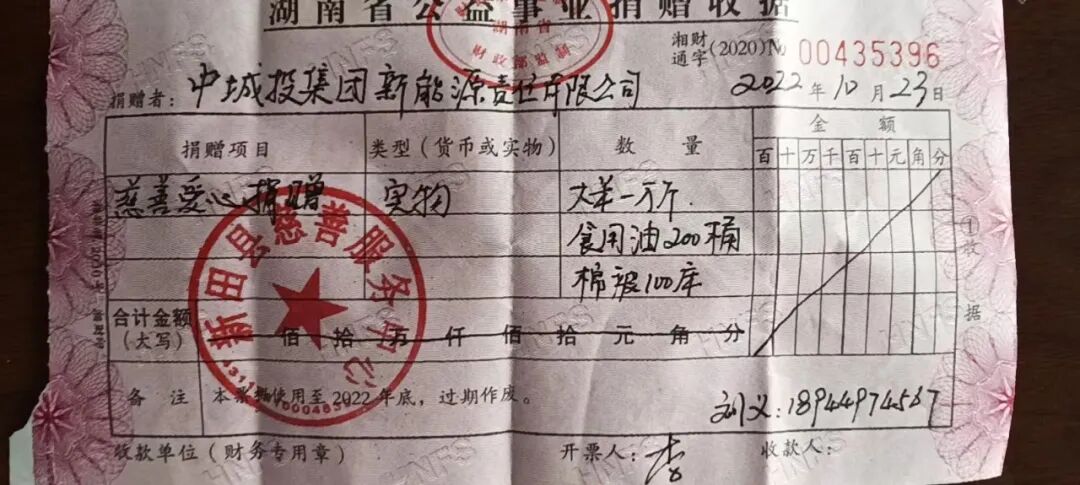 湖南省公益事业捐赠收据
湖南省
财政部监制
湘财通字(2020)№ 00435396
捐赠者：中城投集团新能源责任有限公司 2022年10月23日
捐赠项目 类型（货币或实物） 数量 金额
百十万千百十元角分
慈善爱心捐赠 实物 大米一万斤
食用油200桶
棉被100床
新田县慈善服务中心
合计金额（大写） 佰拾万仟佰拾元角分
①收据
备注 本票据使用至2022年底，过期作废。
刘义：18944974567
收款单位（财务专用章） 开票人： 收款人：
HNFS